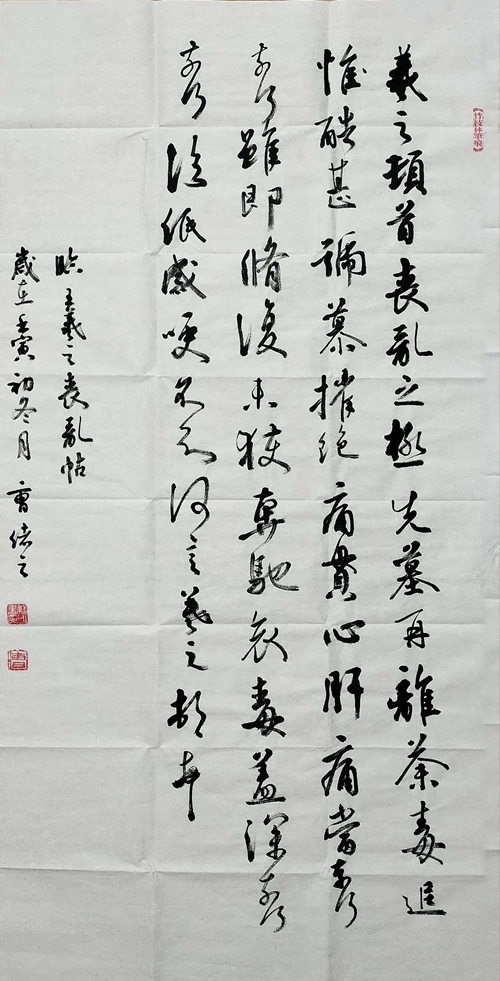 羲之頓首喪亂之極先墓再離荼毒追
惟酷甚號慕摧絶痛貫心肝痛當奈何
奈何雖即脩復未獲奔馳哀毒益深奈何
奈何臨紙感哽不知何言羲之頓首
臨王羲之喪亂帖
歲在壬寅初冬月曹緒之